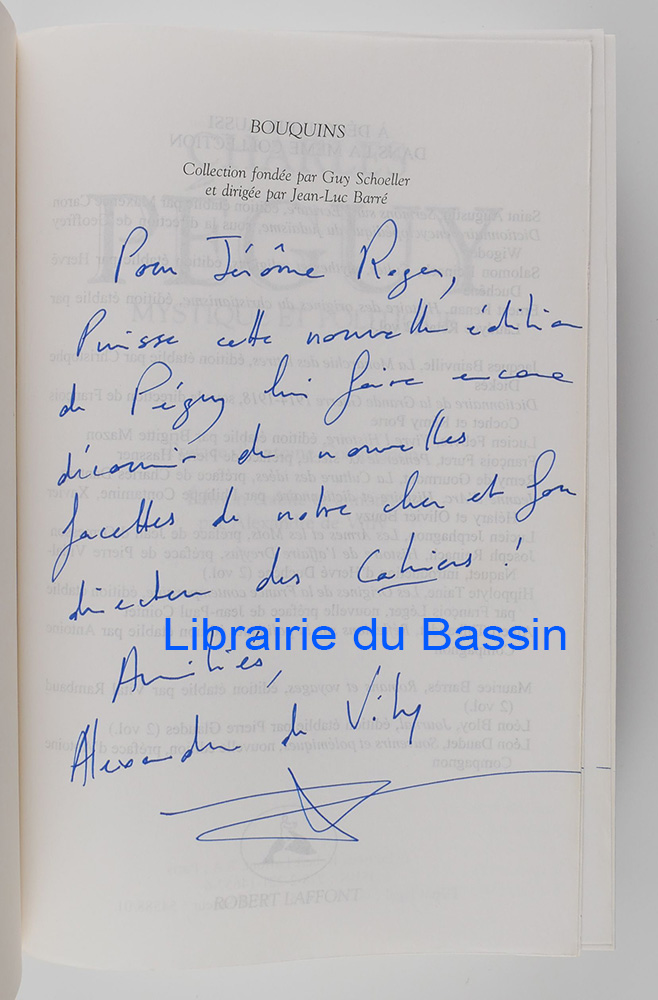 BOUQUINS
Collection fondée par Guy Schoeller
et dirigée par Jean-Luc Barré
Pour Jérôme Roger,
Puisse cette nouvelle édition
de Péguy lui faire encore
découvrir de nouvelles
facettes de notre cher et fou
directeur des Cahiers !
Librairie du Bassin
Amitiés,
Alexandre de Vitry
ROBERT LAFFONT